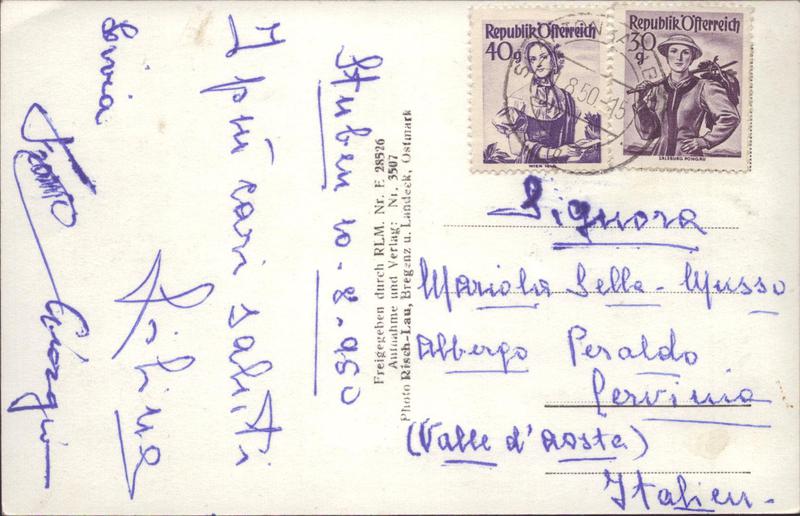 Stuben 10-8-950
I più cari saluti
Livia
Giorgio
Freigegeben durch RLM. Nr. E 28526
Aufnahme und Verlag: Nr. 3507
Photo Risch-Lau, Bregenz u. Landeck, Ostmark
Republik Österreich
40g
WIEN 1840
Republik Österreich
30
g
SALZBURG PONGAU
8.50-15
Signora
Mariola Sella-Musso
Albergo Peraldo
Cervinia
(Valle d'Aosta)
Italien-